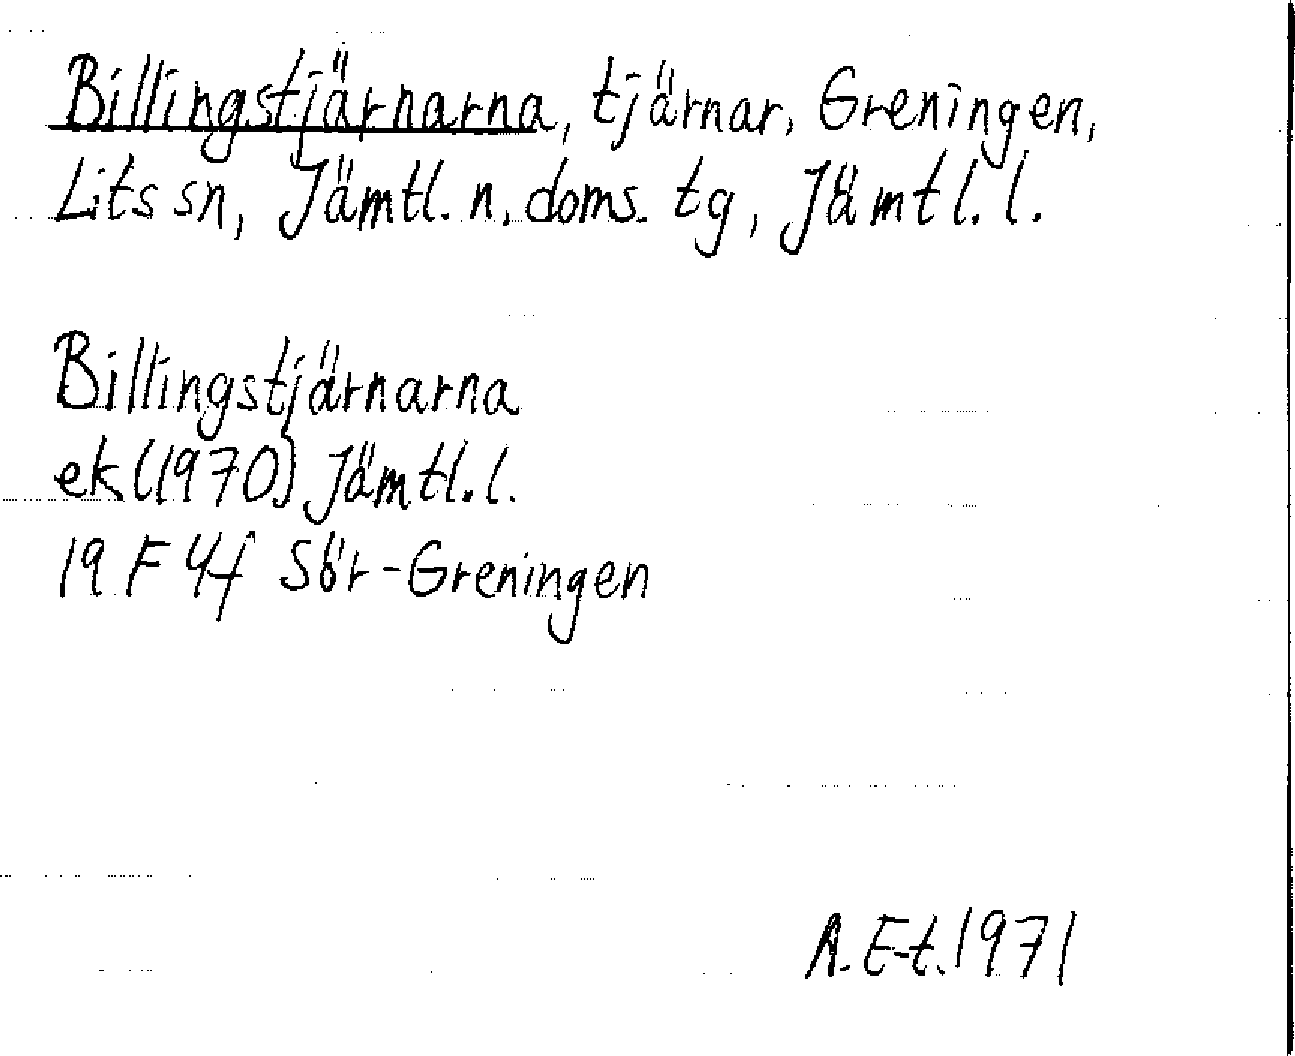 Billingstjärnarna, tjärnar, Greningen,
Lits sn, Jämtl. n. doms. tg, Jämtl. l.
Billingstjärnarna
ek (1970) Jämtl. l.
19 F 4f Sör-Greningen
A. E-t. 1971